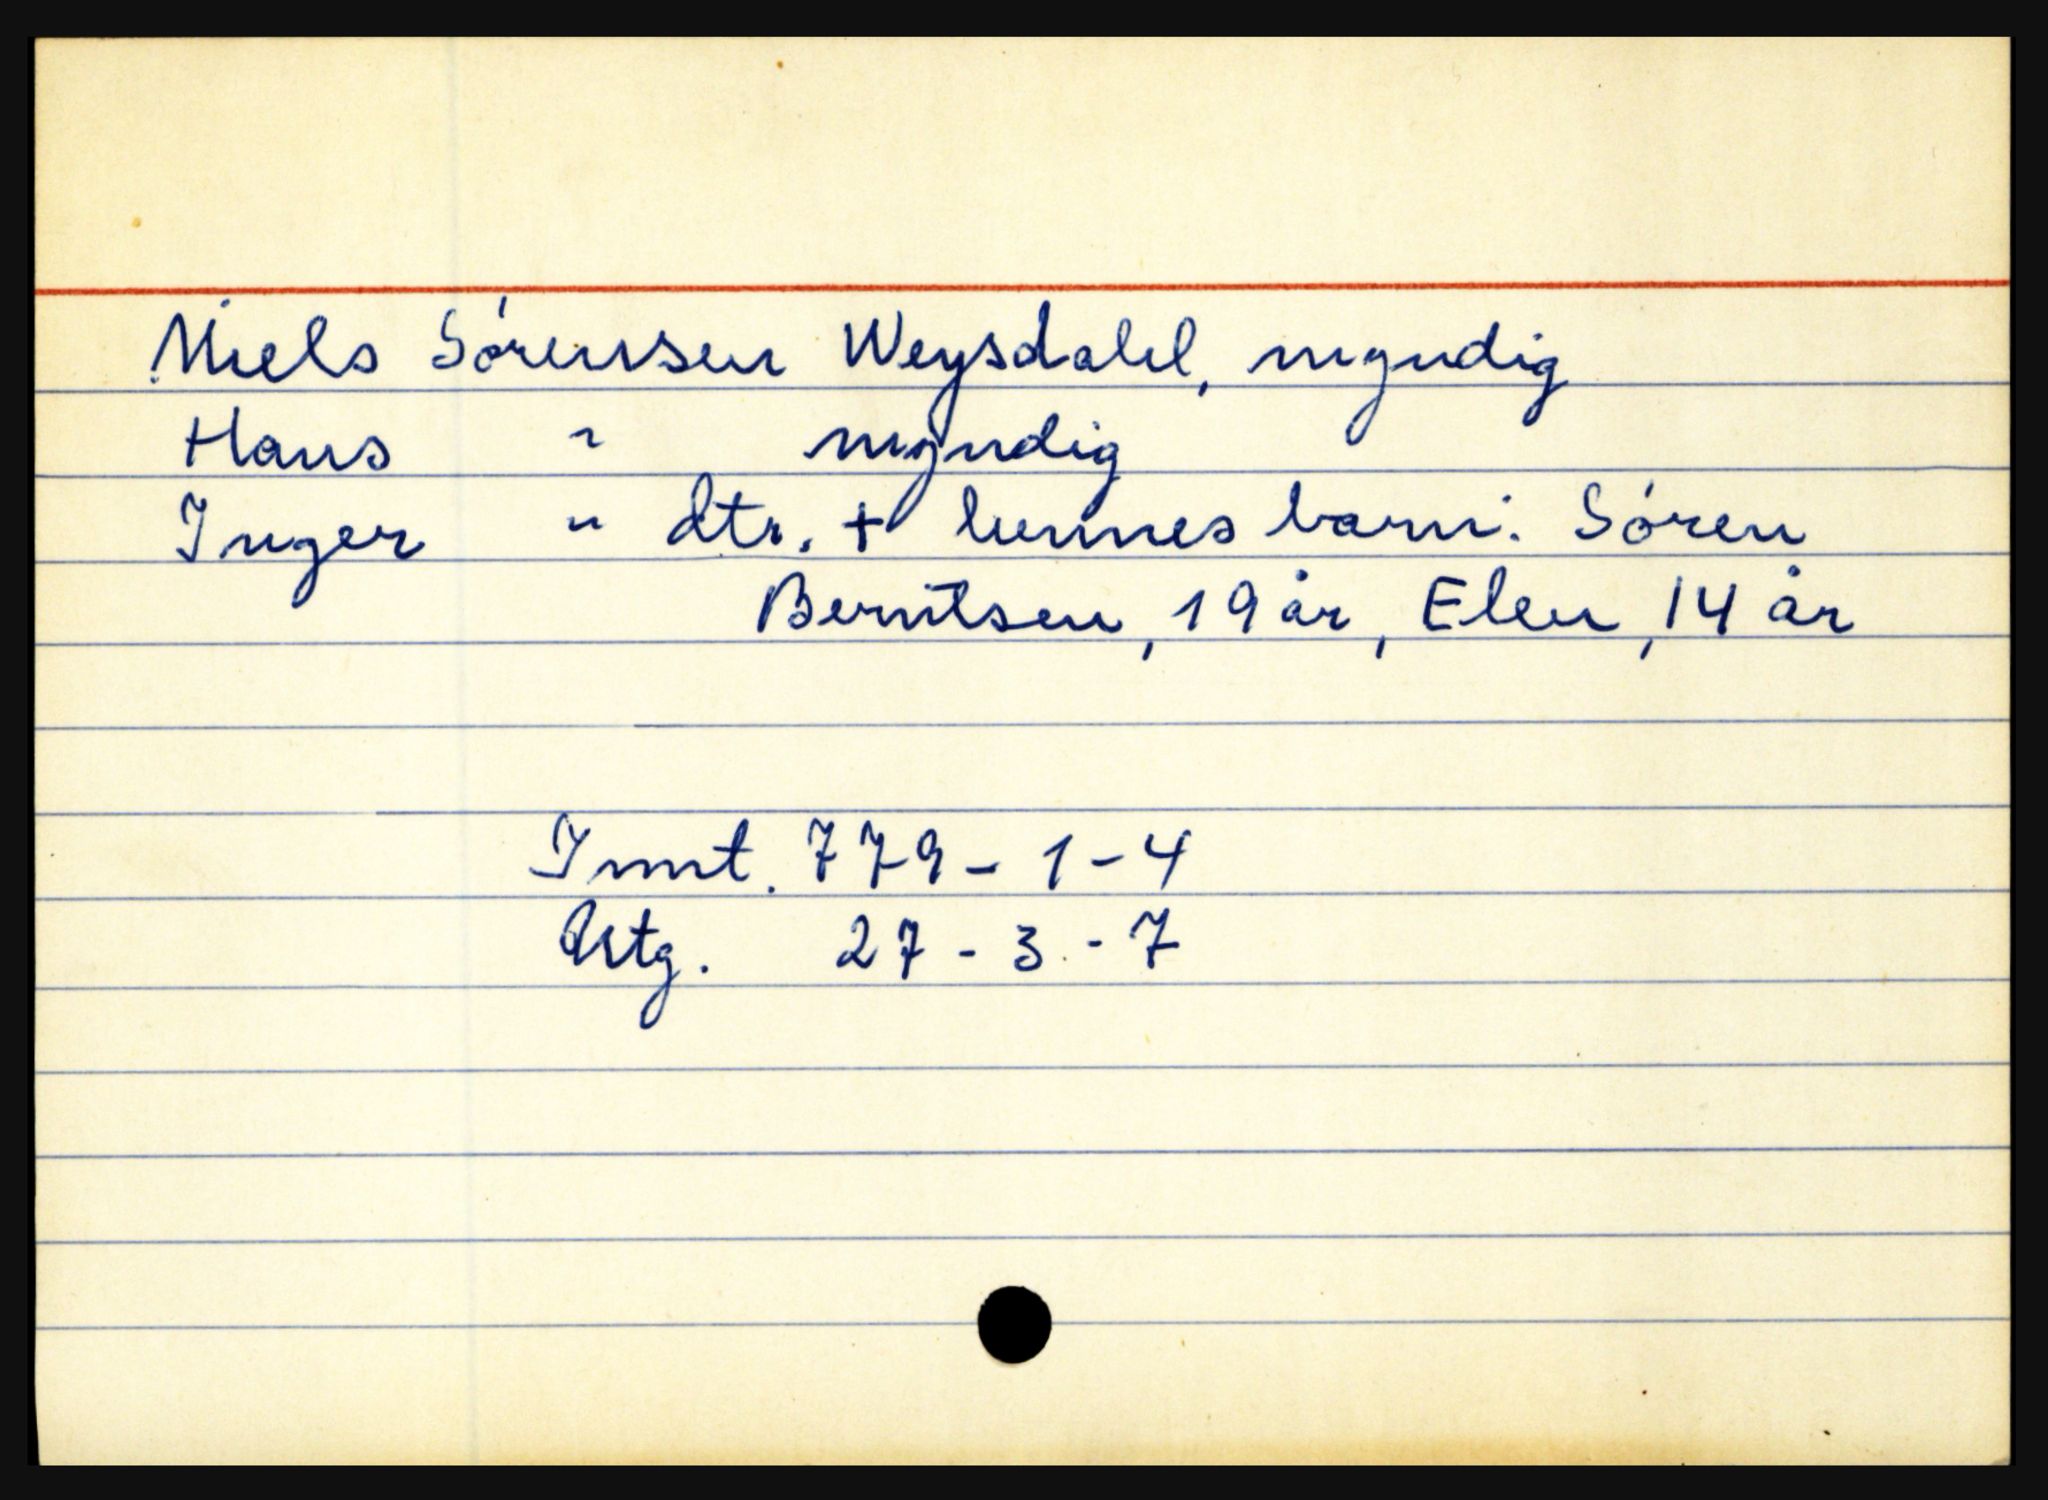 Niels Sörensen Weysdahl, myndig
Hans " myndig
Inger " dtr. + hennes barn: Sören
Berntsen, 19 år, Elen, 14 år
Innt. 779 - 1 - 4
Utg. 27 - 3 - 7